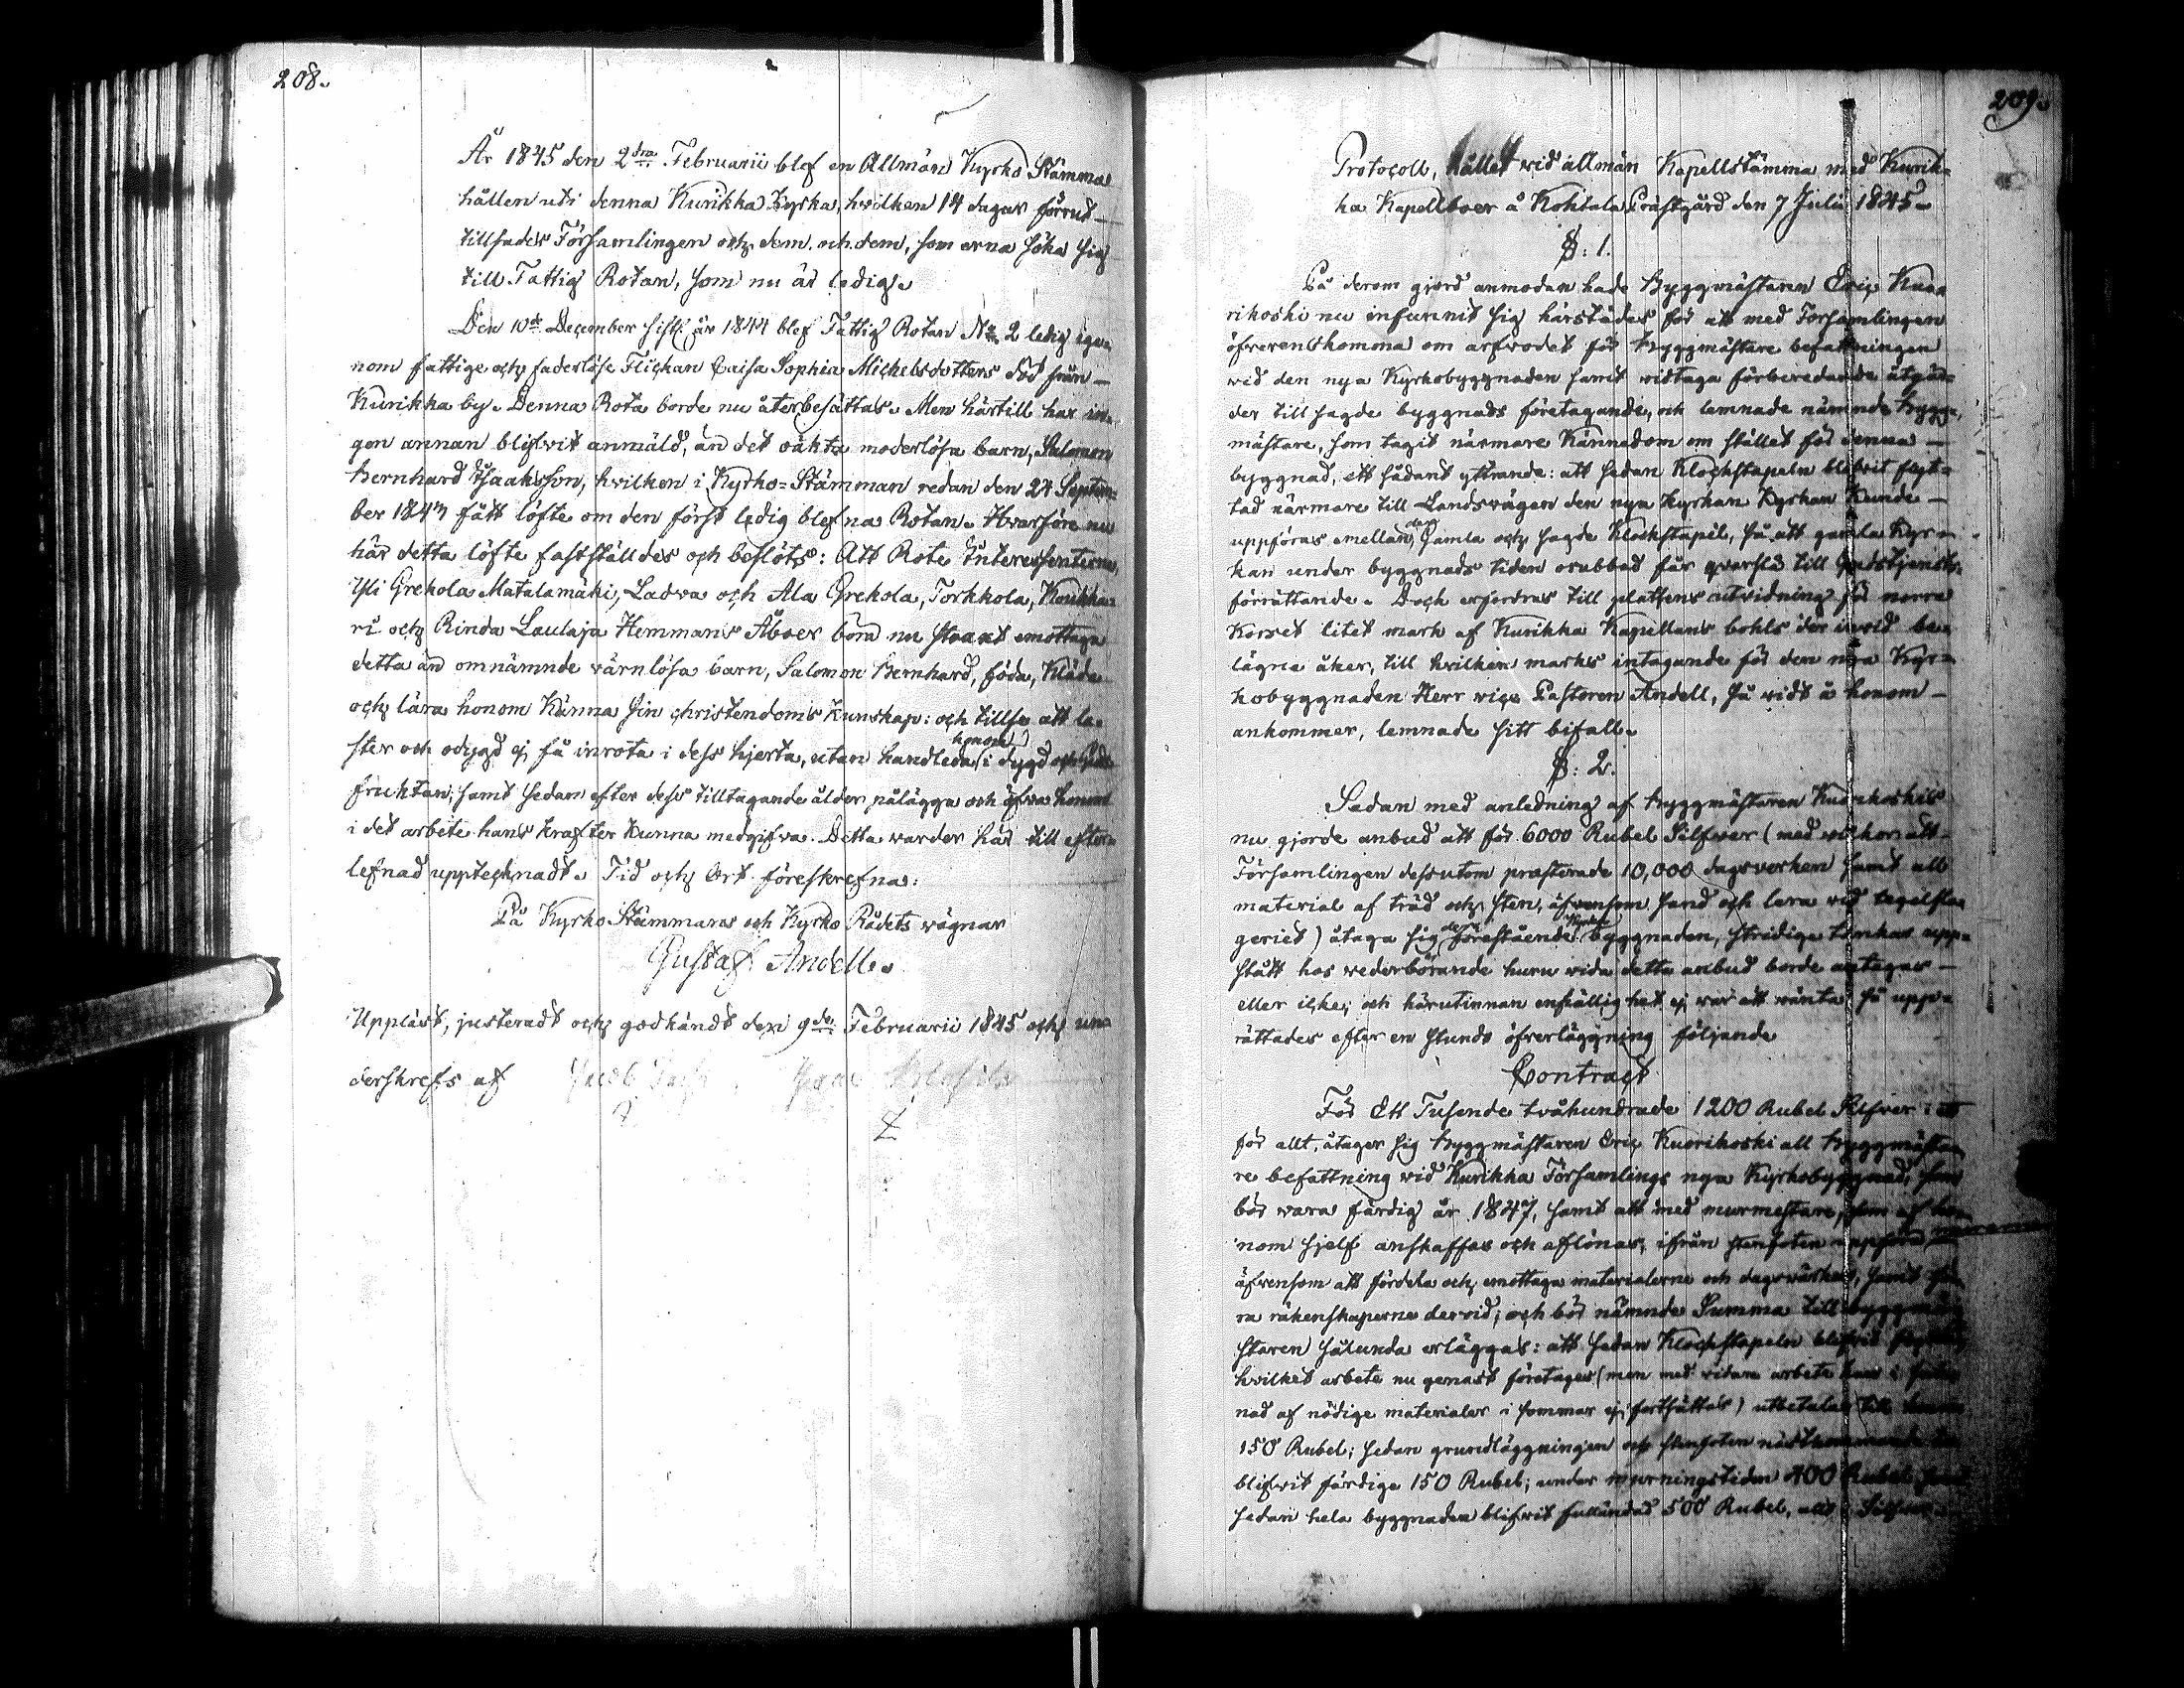 208.
År 1845 den 2dra Februarii blef en Allmän Kyrko Stämma
hållen uti denna Kurikka Kyrka, hvilken 14 dagar förut
tillsades Församlingen och dem och dem, som erna söka sig
till Fattig Rotan, som nu är ledig.
Den 10de December sistl. år 1844 blef Fattig Rotan No 2 ledig ige-
nom fattige och faderlöse Flickan Caisa Sophia Michelsdotters död från
Kurikka by. Denna Rota borde nu återbesättas. Men härtill har in-
gen annan blifvit anmäld, än det oäkta moderlösa barn, Salomon
Bernhard Isaaksson, hvilken i Kyrko-Stämman redan den 24 Septem-
ber 1843 fått löfte om den först ledig blefna Rotan. Hvarföre nu
här detta löfte fastställdes och beslöts: Att Rote Interessenterne,
Yli Grekola Matalamäki, Ladva och Ala Grekola, Torkkola, Koukka-
ri och Rinda Laulaja Hemmans Åboer böra nu straxt emottaga
detta än omnämnde värnlösa barn, Salomon Bernhard, föda, kläda
och lära honom känna sin christendoms kunskap: och tillse att la-
ster och odygd ej få inrota i dess hjerta, utan handleda honom i dygd och Guds
fruktan; samt sedan efter dess tilltagande ålder pålägga och öfva honom
i det arbete hans krafter kunna medgifva. Detta warder här till efter-
lefnad uppteck​nadt. Tid och Ort föreskrefna:
På Kyrko Stämmans och Kyrko Rådets wägnar
Gustaf Andell.
Uppläst, justeradt och godkändt den 9de Februarii 1845 och un-
derskrefs af Jacob
209.
Protocoll, hållet wid allmän Kapellstämma med Kurik-
ka Kapellboer å Kohtala Prästgård den 7 Julii 1845.
§: 1.
På derom gjord anmodan hade Byggmästaren Eric Kuo-
rikoski nu infunnit sig härstädes för att med Församlingen
öfverenskomma om arfvodet för Byggmästare befattningen
wid den nya Kyrkobyggnaden samt widtaga förberedande åtgär-
der till sagde byggnads företagande, och lemnade nämnde Bygg-
mästare, som tagit närmare kännedom om stället för denna
byggnad, ett sådant yttrande: att sedan Klockstapeln blifvit flyt-
tad närmare till Landsvägen den nya Kyrkan Kyrkan kunde
uppföras emellan den gamla och sagde Klockstapel, så att gamla Kyr-
kan under byggnads tiden orubbad får qvarstå till Gudstjensts
förrättande. Doch erfordras till platsens utvidning för norra
korset litet mark af Kurikka Kapellans bohls der invid be-
lägna åker, till hvilken marks intagande för den nya Kyr-
kobyggnaden Herr vice Pastoren Andell, så vidt å honom
ankommer, lemnade sitt bifall.
§: 2.
Sedan med anledning af Byggmästaren Kuorikoskis
nu gjorde anbud att för 6000 Rubel Silfver (med wilkor att
Församlingen dessutom præsterade 10,000 dagsverken samt allt
material af träd och sten, äfvensom sand och lera wid tegelsla-
geriet) åtaga sig den förestående Kyrko byggnaden, stridige tankar upp-
stått hos wederbörande huru vida detta anbud borde antagas
eller icke, och härutinnan enhällighet ej war att wänta, så upp-
rättades efter en stunds öfverläggning följande
Contract
För Ett Tusende tvåhundrade 1200 Rubel Silfver i ett
för allt, åtager sig Byggmästaren Eric Kuorikoski all Byggmästa-
re befattning wid Kurikka Församlings nya Kyrkobyggnad, som
bör wara färdig år 1847, samt att med murmestare, som af ho-
nom sjelf anskaffas och aflönas, ifrån stenfoten uppföra
äfvensom att fördela och emottaga materialerne och dagsvärken, samt fö-
ra räkenskaperne dervid; och bör nämnde Summa till Byggmä-
staren sålunda erläggas: att sedan Klockstapeln blifvit flyttad
hvilket arbete nu genast företages (men med widare arbete kan i sak-
nad af nödige materialer i sommar ej fortsättas) utbetalas till honom
150 Rubel; sedan grundläggningen och stenfoten nästkommande
blifvit färdige 150 Rubel; under murningstiden 400 Rubel, samt
sedan hela byggnaden blifvit fulländad 500 Rubel, allt i Silfver